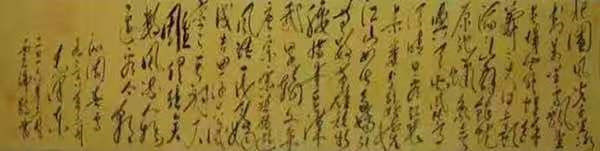 北国风光千里冰
封万里雪飘望
长城内外惟余
莽莽大河上下顿
失滔滔山舞银蛇
原驰蜡象欲与
天公试比高须
晴日看红装
素裹分外妖娆
江山如此多娇
引无数英雄竞折
腰惜秦皇汉
武略输文采
唐宗宋祖稍逊
风骚一代天骄
成吉思汗只识
弯弓射大
雕俱往矣
数风流人物
还看今朝
沁园春雪
毛泽东